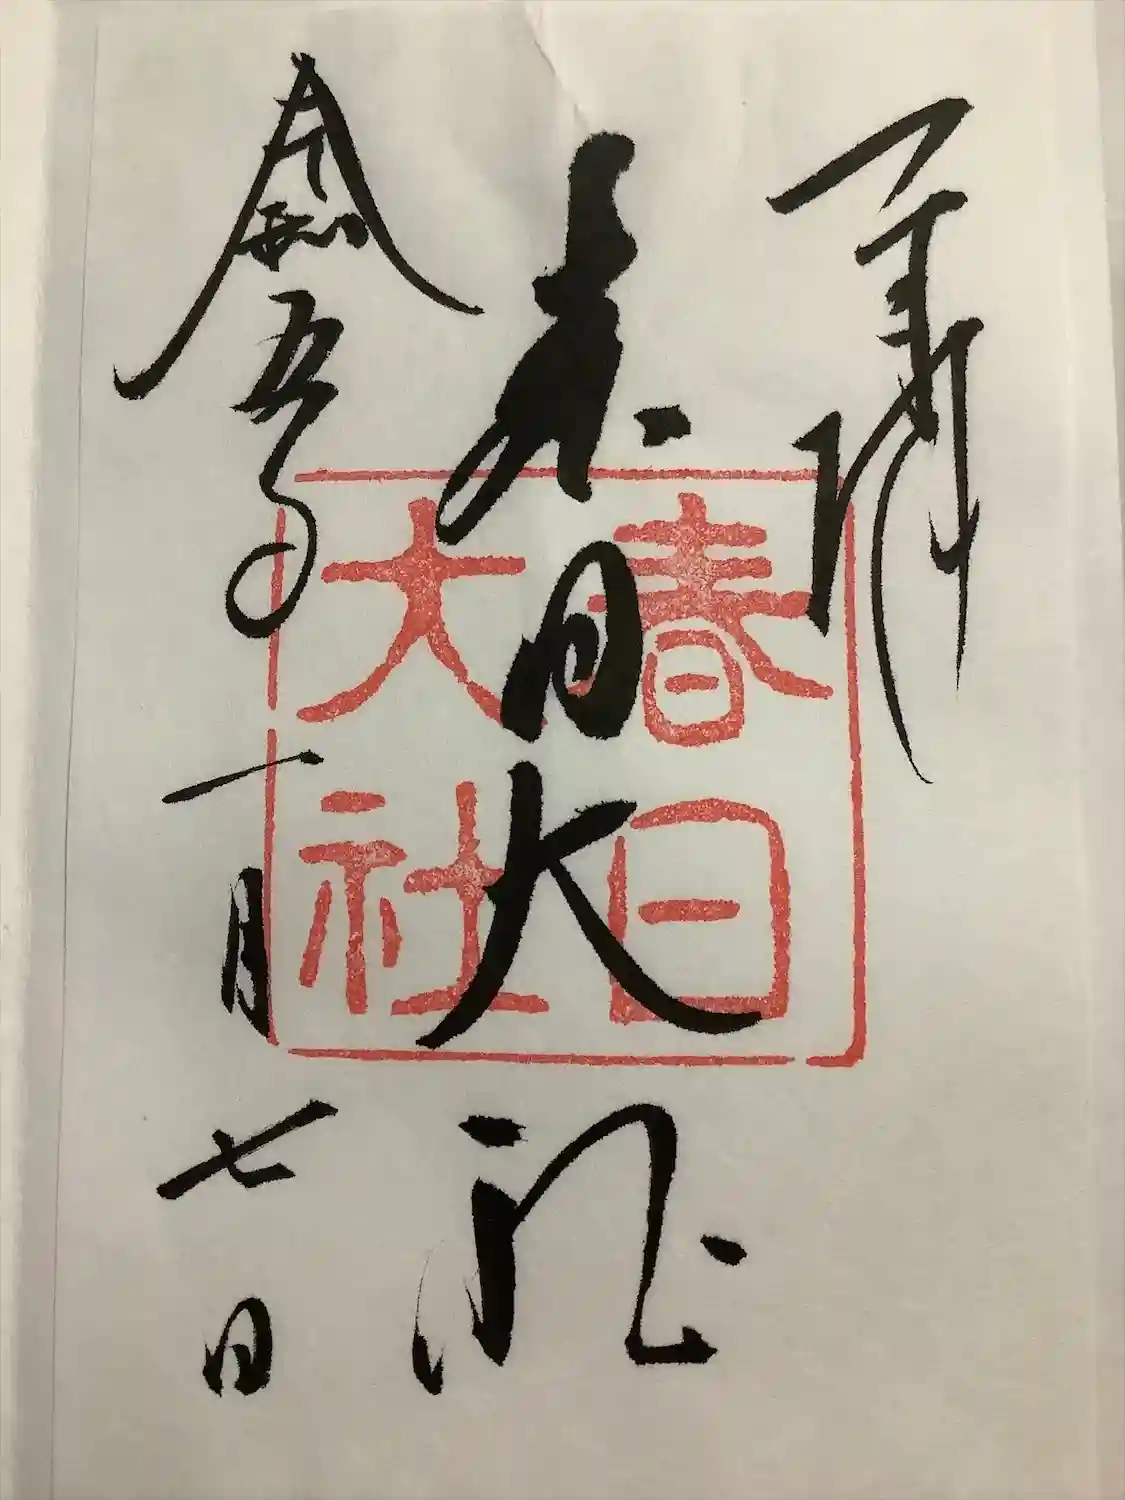 奉拝
春日大社
令和五年
一月七日
春日
大社